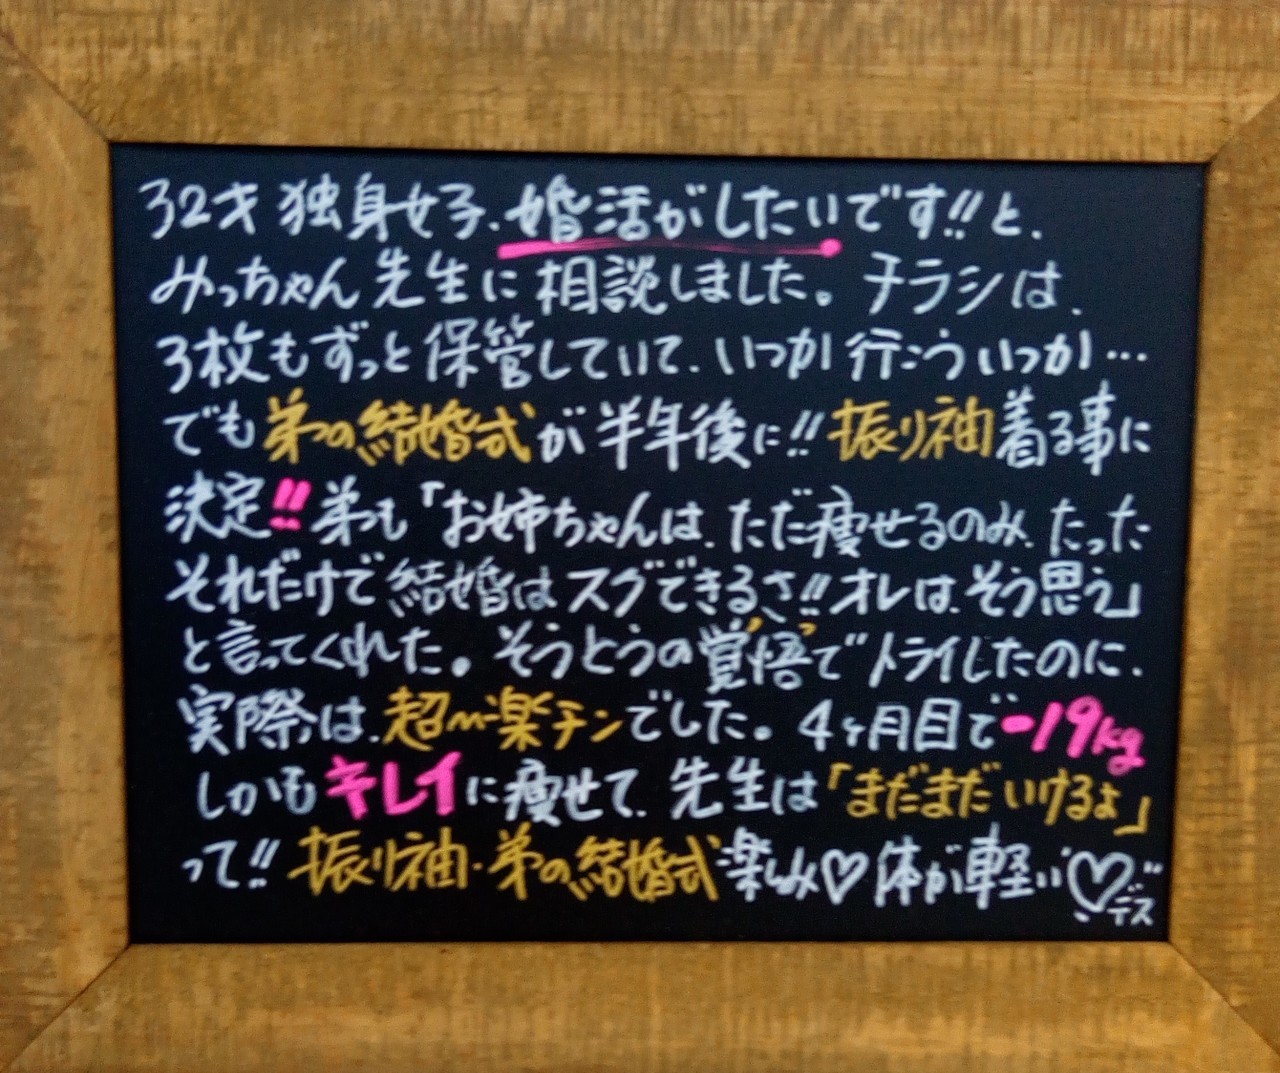 32才 独身女子、婚活がしたいです!!と、
みっちゃん先生に相談しました。チラシは、
3枚もずっと保管していて、いつか行こういつか…
でも弟の結婚式が半年後に!!振り袖着る事に
決定!!弟も「お姉ちゃんは、ただ痩せるのみ、たった
それだけで結婚はスグできるさ!!オレは、そう思う」
と言ってくれた。そうとうの覚悟でトライしたのに、
実際は、超〜楽チンでした。4ヶ月目で-19kg
しかもキレイに痩せて、先生は「まだまだいけるよ」
って!!振り袖・弟の結婚式楽しみ♡体が軽い♡デス